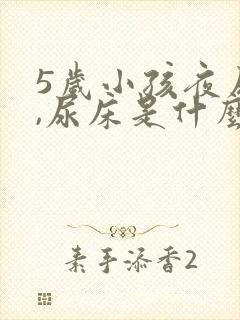 5歲小孩夜尿
,尿床是什麼
素手添香2